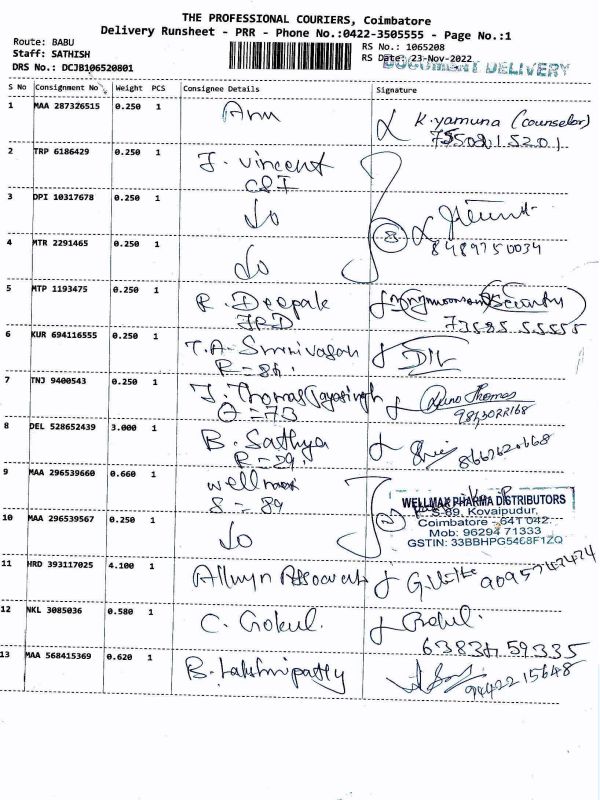 THE PROFESSIONAL COURIERS, Coimbatore
Delivery Runsheet - PRR - Phone No.:0422-3505555 - Page No.:1
Route: BABU
Staff: SATHISH
DRS No.: DCJB106520801
RS No.: 1065208
RS Date: 23-Nov-2022
DOCUMENT DELIVERY
S No Consignment No Weight PCS Consignee Details Signature
1 MAA 287326515 0.250 1 K.yamuna (counselor)
2 TRP 6186429 0.250 1 J. Vincent
CSI
3 DPI 10317678 0.250 1 Do
8
8489750034
4 MTR 2291465 0.250 1 Do
5 MTP 1193475 0.250 1 R. Deepak (Security)
73585 55555
6 KUR 694116555 0.250 1 T.A. Srinivasan
7 TNJ 9400543 0.250 1 J. Thomas Jayasingh
8 DEL 528652439 3.000 1 B. Sathya
R-29.
9 MAA 296539660 0.660 1 wellmax
S - 89
WELLMAX PHARMA DISTRIBUTORS
S-89, Kovaipudur,
Coimbatore - 641 042.
Mob: 96294 71333
10 MAA 296539567 0.250 1 Do
11 HRD 393117025 4.100 1 Allwyn Associates
12 NKL 3085036 0.580 1 C. Gokul.
63834 59335
13 MAA 568415369 0.620 1 B. Lakshmipathy
94422 15648